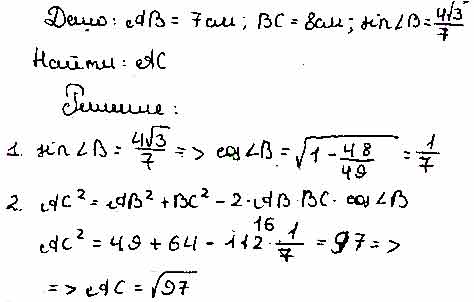 Дано: AB = 7см; BC = 8см; sin∠B = 4√3/7
Найти: AC
Решение:
1. sin∠B = 4√3/7 => cos∠B = √(1 - 48/49) = 1/7
2. AC² = AB² + BC² - 2·AB·BC·cos∠B
AC² = 49 + 64 - 112 16 · 1/7 = 97 =>
=> AC = √97